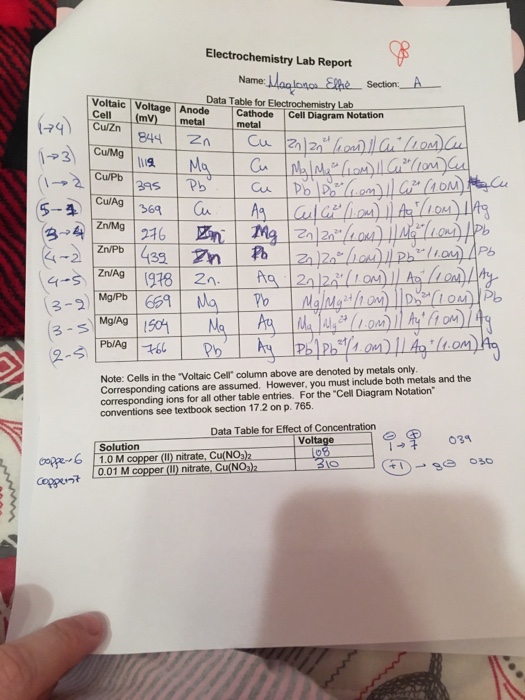 Electrochemistry Lab Report
Name: Section: A
Data Table for Electrochemistry Lab
Voltaic Cell Voltage (mV) Anode metal Cathode metal Cell Diagram Notation
(1→4) Cu/Zn 844 Zn Cu Zn|Zn²⁺(1.0M)||Cu⁺(1.0M)|Cu
(1→3) Cu/Mg Mg Cu Mg|Mg²⁺(1.0M)||Cu²⁺(1.0M)|Cu
(1→2) Cu/Pb 395 Pb Cu Pb|Pb²⁺(1.0M)||Cu²⁺(1.0M)|Cu
Cu/Ag 369 Cu Ag Cu|Cu²⁺(1.0M)||Ag⁺(1.0M)|Ag
(3→4) Zn/Mg 276 Zn Mg Zn|Zn²⁺(1.0M)||Mg²⁺(1.0M)|Pb
(4-2) Zn/Pb 439 Zn Pb Zn|Zn²⁺(1.0M)||Pb²⁺(1.0M)|Pb
(4-5) Zn/Ag 1978 Zn. Ag Zn|Zn²⁺(1.0M)||Ag⁺(1.0M)|Ag
(3-2) Mg/Pb 659 Mg Pb Mg|Mg²⁺(1.0M)||Pb²⁺(1.0M)|Pb
(3-5) Mg/Ag 1504 Mg Ag Mg|Mg²⁺(1.0M)||Ag⁺(1.0M)|Ag
(2-5) Pb/Ag 766 Pb Ag Pb|Pb²⁺(1.0M)||Ag⁺(1.0M)|Ag
Note: Cells in the "Voltaic Cell" column above are denoted by metals only.
Corresponding cations are assumed. However, you must include both metals and the
corresponding ions for all other table entries. For the "Cell Diagram Notation"
conventions see textbook section 17.2 on p. 765.
Data Table for Effect of Concentration
Solution Voltage
copper 6 1.0 M copper (II) nitrate, Cu(NO3)2 108 1→7 039
copper 7 0.01 M copper (II) nitrate, Cu(NO3)2 310 030